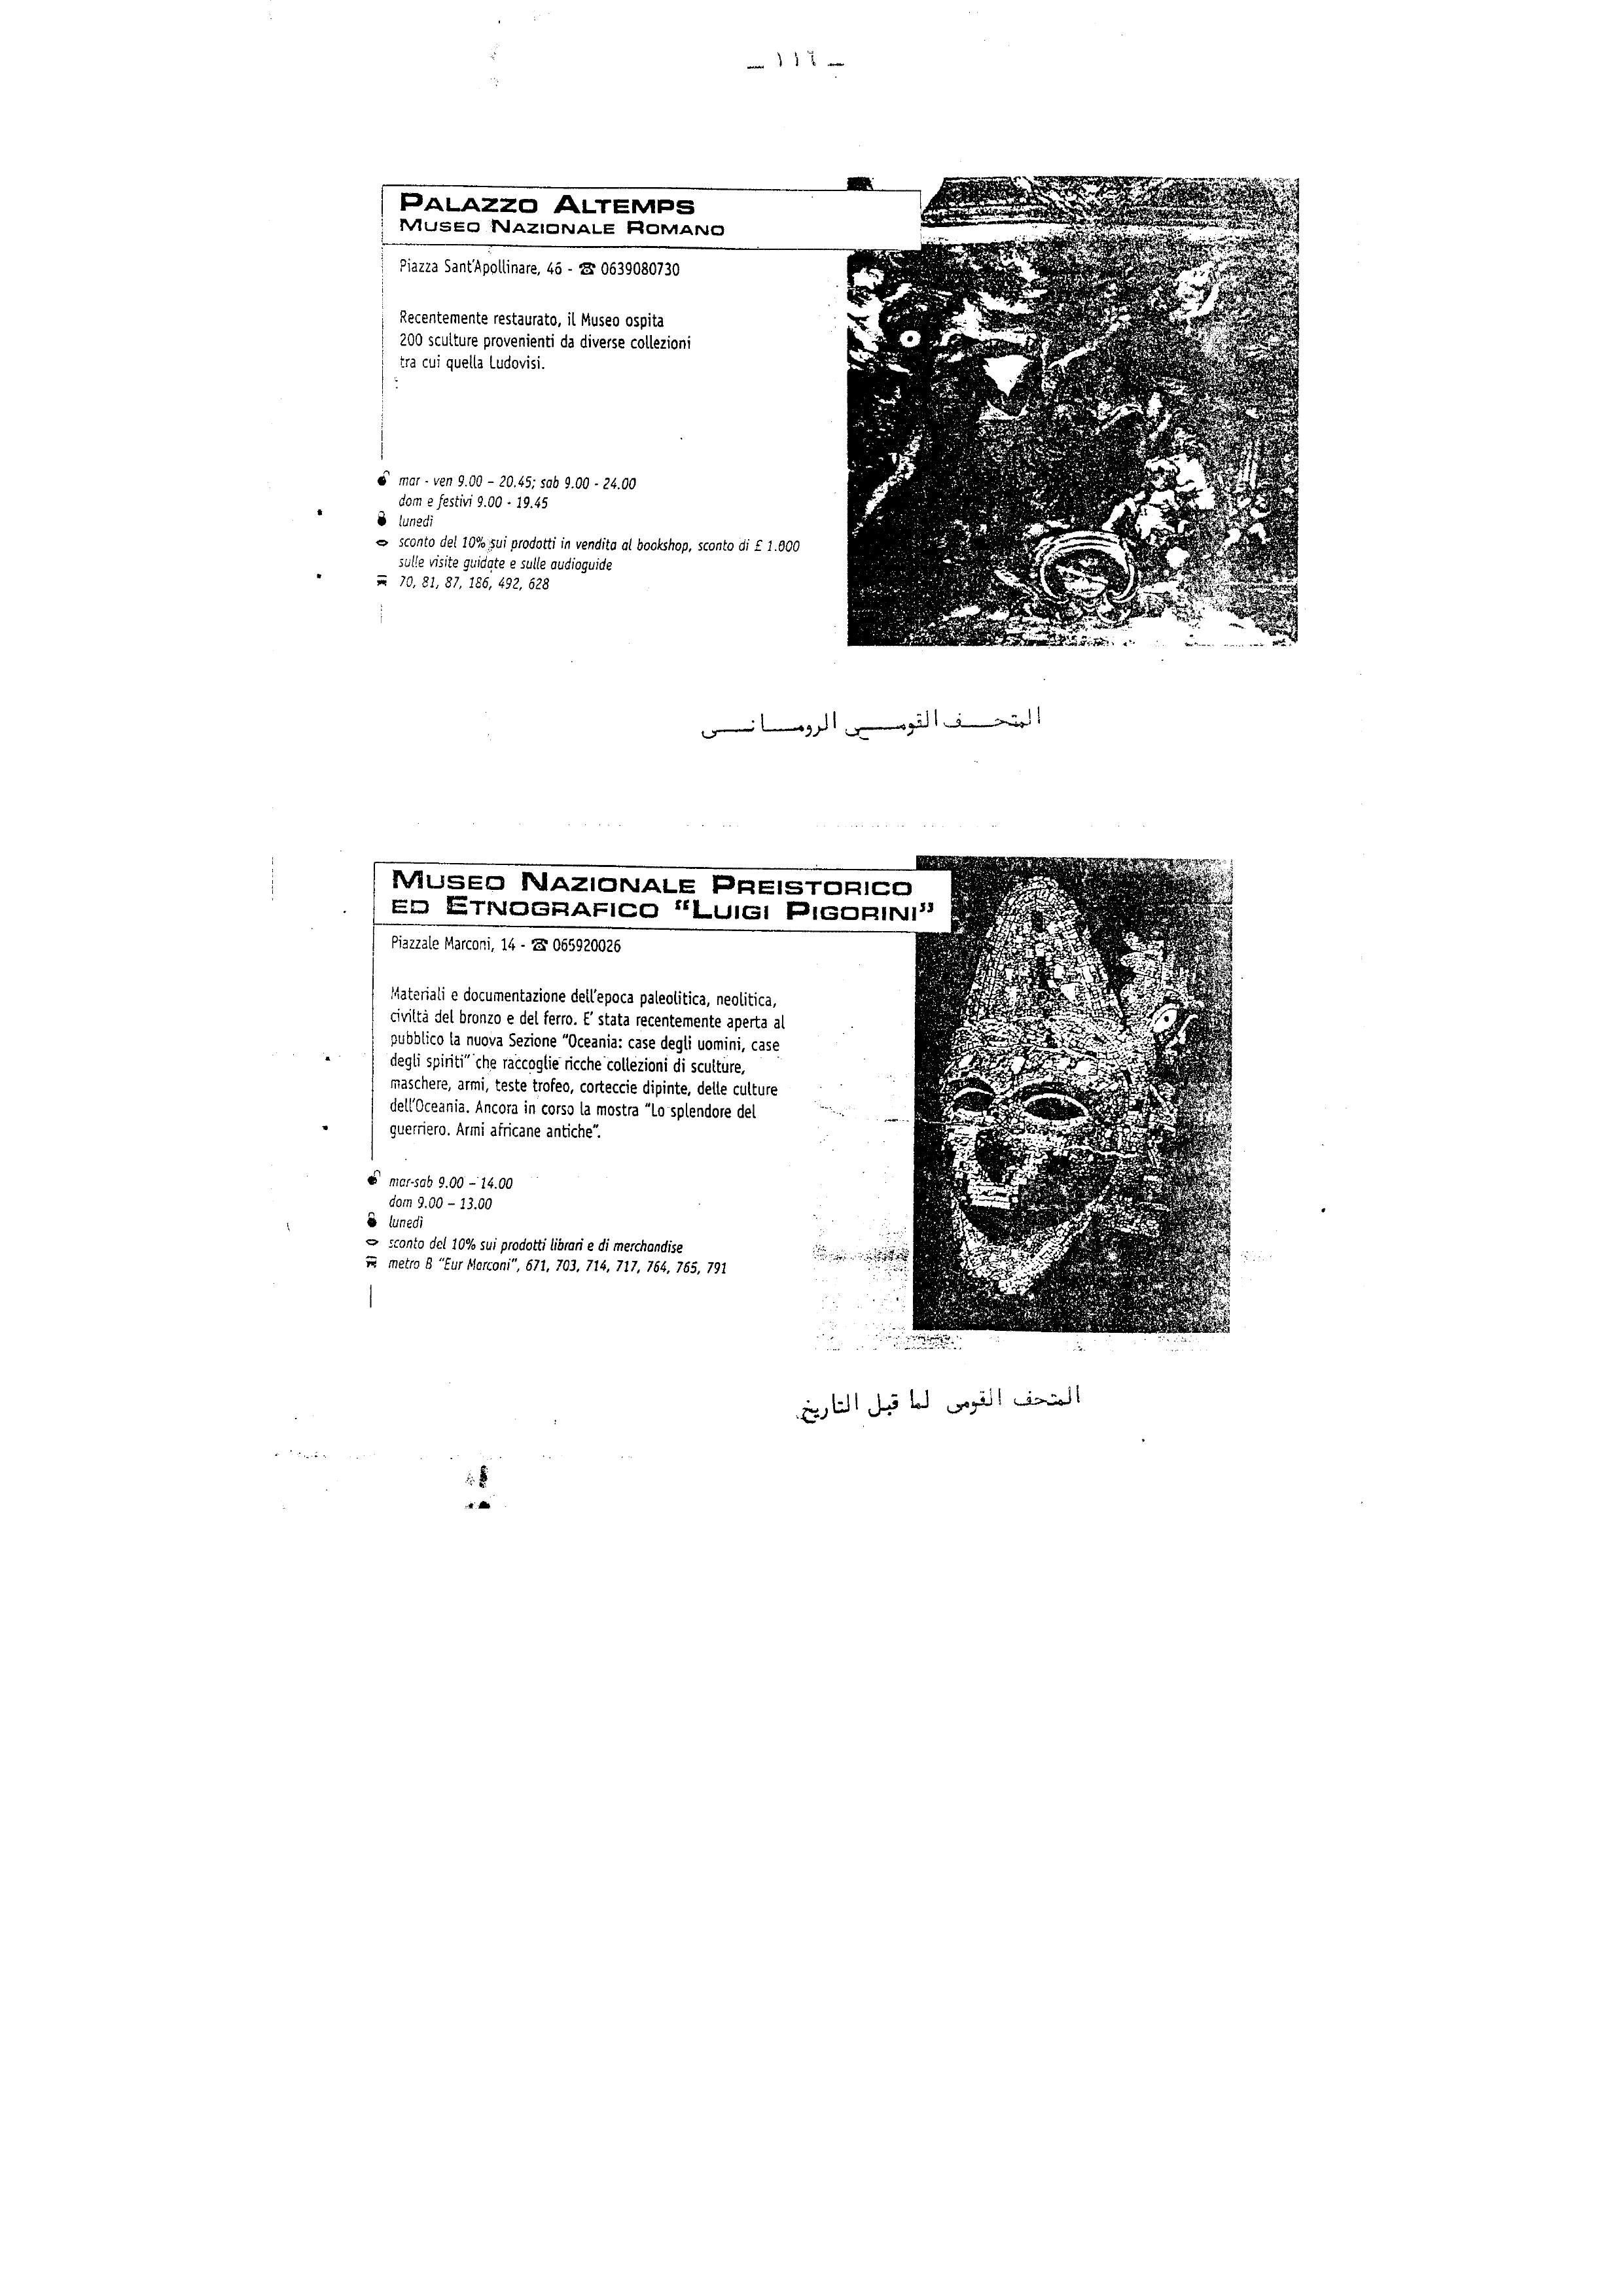 — ١١٦ —
PALAZZO ALTEMPS
MUSEO NAZIONALE ROMANO
Piazza Sant'Apollinare, 46 - ☎ 0639080730
Recentemente restaurato, il Museo ospita
200 sculture provenienti da diverse collezioni
tra cui quella Ludovisi.
mar - ven 9.00 – 20.45; sab 9.00 - 24.00
dom e festivi 9.00 - 19.45
lunedì
sconto del 10% sui prodotti in vendita al bookshop, sconto di £ 1.000
sulle visite guidate e sulle audioguide
70, 81, 87, 186, 492, 628
المتحف القومي الرومانى
MUSEO NAZIONALE PREISTORICO
ED ETNOGRAFICO “LUIGI PIGORINI”
Piazzale Marconi, 14 - ☎ 065920026
Materiali e documentazione dell'epoca paleolitica, neolitica,
civiltà del bronzo e del ferro. E' stata recentemente aperta al
pubblico la nuova Sezione “Oceania: case degli uomini, case
degli spiriti” che raccoglie ricche collezioni di sculture,
maschere, armi, teste trofeo, corteccie dipinte, delle culture
dell'Oceania. Ancora in corso la mostra “Lo splendore del
guerriero. Armi africane antiche”.
mar-sab 9.00 – 14.00
dom 9.00 – 13.00
lunedì
sconto del 10% sui prodotti librari e di merchandise
metro B “Eur Marconi”, 671, 703, 714, 717, 764, 765, 791
المتحف القومى لما قبل التاريخ